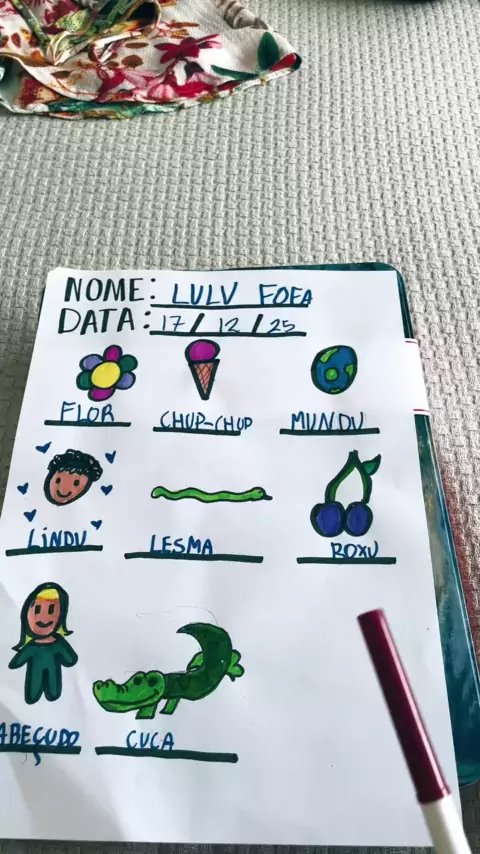 NOME: LULV FOFA
DATA: 17/12/25
FLOR CHUP-CHUP MUNDU
LINDU LESMA ROXU
ABEÇUDO CUCA